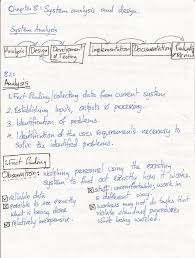 Chapter 8: System analysis and design.
System Analysis
Analysis Design Development & Testing Implementation Documentation Evaluation
8.2.1
Analysis
1. Fact finding/collecting data from current system
2. Establishing inputs, outputs & processing.
3. Identification of problems.
4. Identification of the user requirements necessary to
solve the identified problems.
1. Fact finding
Observations: Watching personnel using the existing
system to find out exactly how it works.
reliable data
possible to see exactly
what is being done
relatively inexpensive
staff uncomfortable, work in
a different way.
workers may not do tasks that
violate standard procedures
whilst being watched.